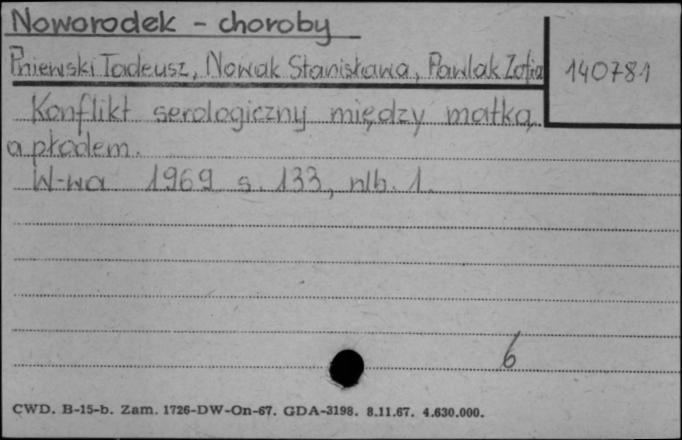 Noworodek - choroby
Pniewski Tadeusz, Nowak Stanisława, Pawlak Zofia
140781
Konflikt serologiczny między matką
a płodem.
W-wa 1969 s. 133, nlb. 1.
6
CWD. B-15-b. Zam. 1726-DW-On-67. GDA-3198. 8.11.67. 4.630.000.